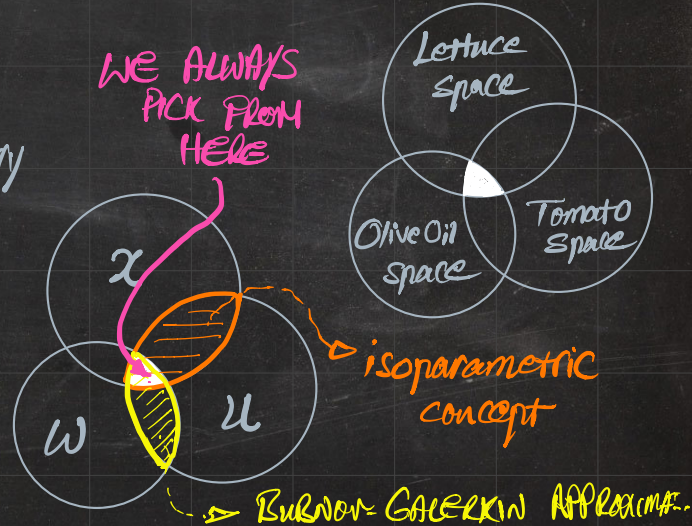 WE ALWAYS
PICK FROM
HERE
Lettuce
space
Olive Oil
space
Tomato
Space
x
w
u
isoparametric
concept
BUBNOV-GALERKIN APPROXIMA..